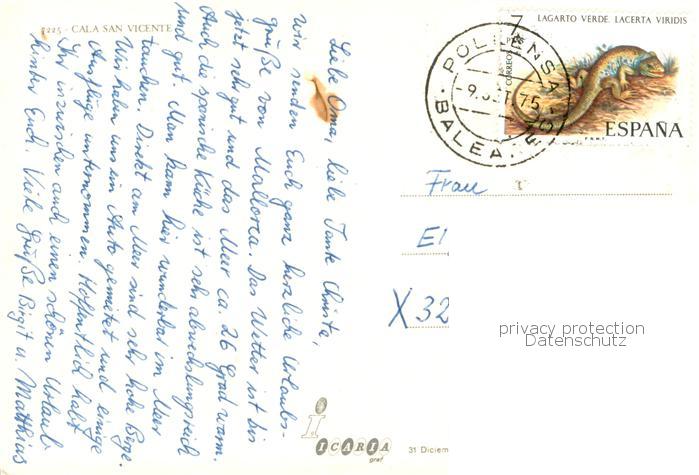 7225 - CALA SAN VICENTE
Liebe Oma, liebe Tante Christe,
wir senden Euch ganz herzliche Urlaubs-
grüße von Mallorca. Das Wetter ist bis
jetzt sehr gut und das Meer ca. 26 Grad warm.
Auch die spanische Küche ist sehr abwechslungsreich
und gut. Man kann hier wunderbar im Meer
tauchen. Direkt am Meer sind sehr hohe Berge.
Wir haben uns ein Auto gemietet und einige
Ausflüge unternommen. Hoffentlich habt
Ihr inzwischen auch einen schönen Urlaub
hinter Euch. Viele Grüße Birgit u. Matthias
7
PTA
CORREOS
LAGARTO VERDE. LACERTA VIRIDIS
ESPAÑA
POLLENSA
BALEA
Frau
El
X 32
privacy protection
Datenschutz
ICARIA
graf
31 Diciem